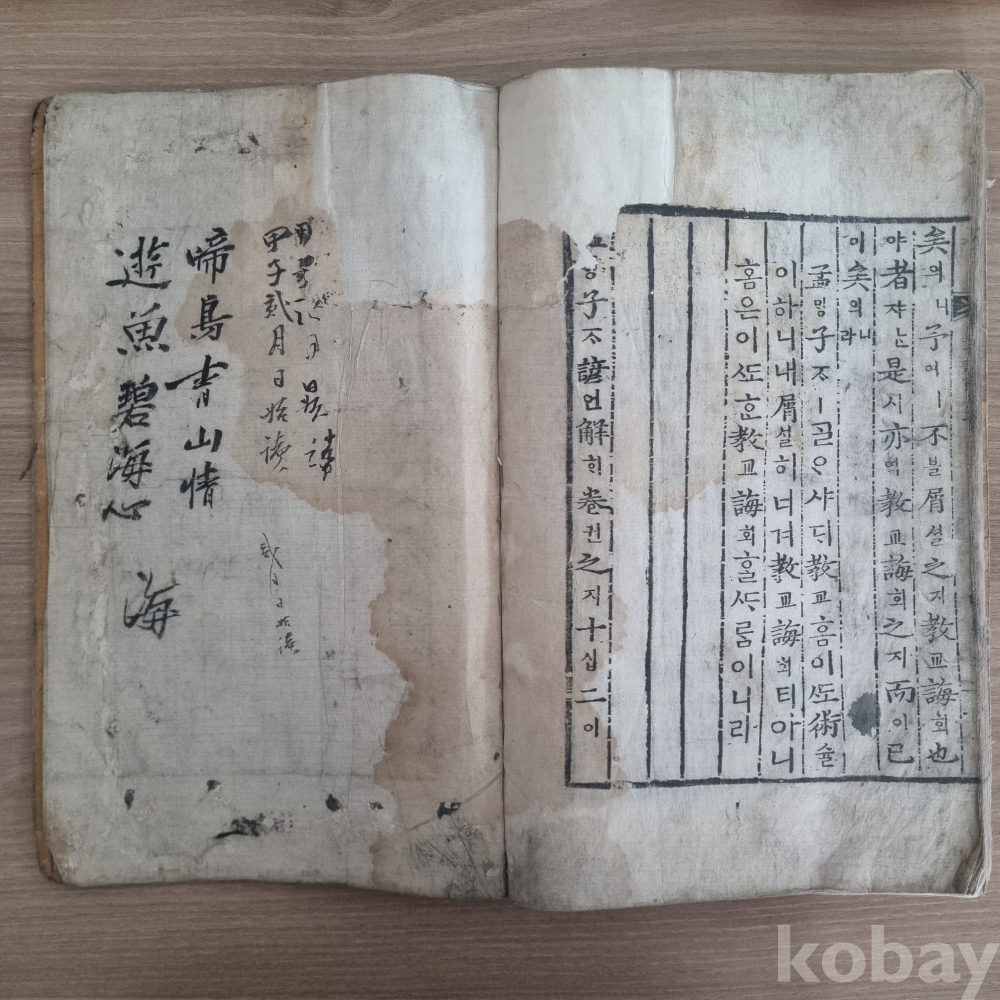 矣의니予여ㅣ不블屑셜之지教교誨회也
야者쟈ᄂᆞᆫ是시亦역教교誨회之지而이已
이矣의니라
孟ᄆᆡᆼ子ᄌᆞㅣᄀᆞᆯᄋᆞ샤ᄃᆡ教교홈이ᄯᅩ術슐
이하니내屑셜히너겨教교誨회티아니
홈은이ᄯᅩᄒᆞᆫ教교誨회ᄒᆞᆯᄯᆞᄅᆞᆷ이니라
子ᄌᆞ諺언解ᄒᆡ卷권之지十십二이
甲子貳月日始讀
啼鳥青山情
遊魚碧海心
海
kobay